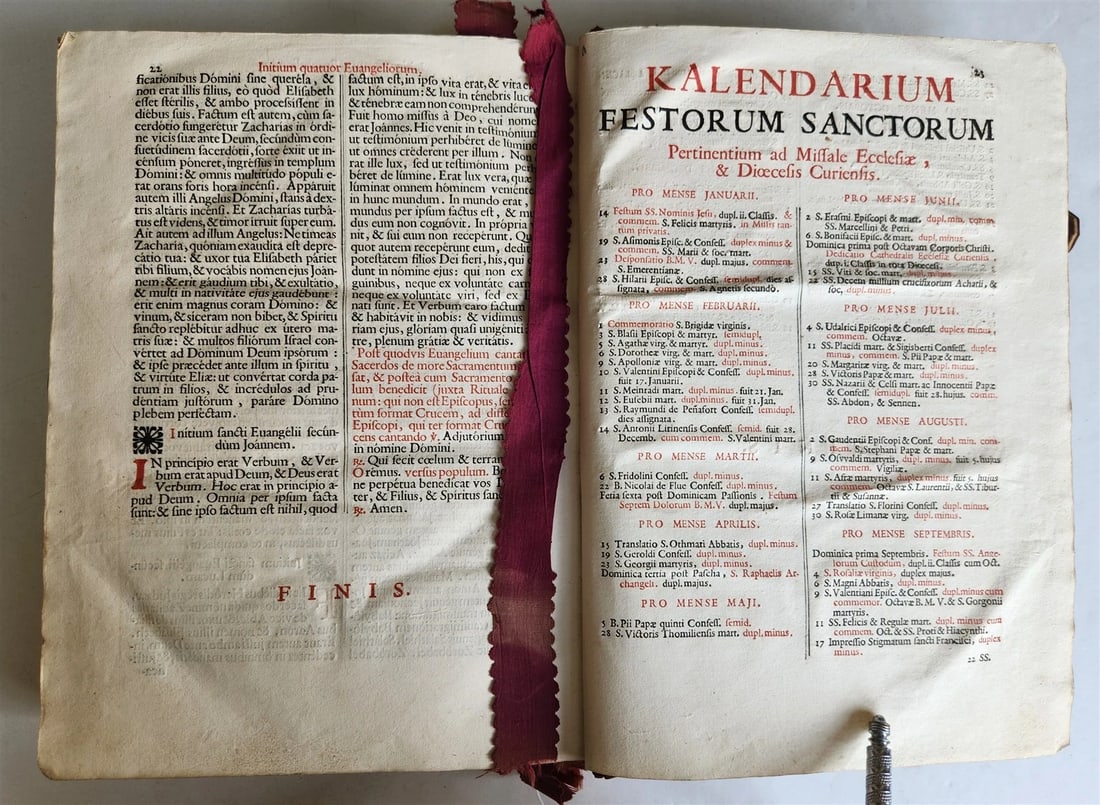 22
Initium quatuor Euangeliorum.
ficationibus Dómini sine queréla, &
non erat illis filius, eò quod Elisabeth
esset stérilis, & ambo processíssent in
diébus suis. Factum est autem, cùm sa-
cerdótio fungerétur Zacharias in órdi-
ne vicis suæ ante Deum, secúndùm con-
suetúdinem sacerdótii, sorte éxiit ut in-
cénsum póneret, ingréssus in templum
Dómini: & omnis multitúdo pópuli e-
rat orans foris hora incénsi. Appáruit
autem illi Angelus Dómini, stans à dex-
tris altáris incénsi. Et Zacharias turbá-
tus est videns, & timor írruit super eum.
Ait autem ad illum Angelus: Ne tímeas
Zacharía, quóniam exaudíta est depre-
cátio tua: & uxor tua Elisabeth páriet
tibi fílium, & vocábis nomen ejus Joán-
nem: & erit gáudium tibi, & exultátio,
& multi in nativitáte ejus gaudébunt:
erit enim magnus coram Dómino: &
vinum, & síceram non bibet, & Spíritu
sancto replébitur adhuc ex útero ma-
tris suæ: & multos filiórum Israel con-
vértet ad Dóminum Deum ipsórum:
& ipse præcédet ante illum in spíritu,
& virtúte Elíæ: ut convértat corda pa-
trum in fílios, & incrédulos ad pru-
déntiam justórum, paráre Dómino
plebem perféctam.
Initium sancti Euangélii secún-
dùm Joánnem.
IN princípio erat Verbum, & Ver-
bum erat apud Deum, & Deus erat
Verbum. Hoc erat in princípio a-
pud Deum. Omnia per ipsum facta
sunt: & sine ipso factum est nihil, quod
factum est, in ipso vita erat, & vita
lux hóminum: & lux in ténebris luc
& ténebræ eam non comprehendérun
Fuit homo missus à Deo, cui nome
erat Joánnes. Hic venit in testimónium
ut testimónium perhibéret de lúmine
ut omnes créderent per illum. Non
rat ille lux, sed ut testimónium per
béret de lúmine. Erat lux vera, quæ
lúminat omnem hóminem veniente
in hunc mundum. In mundo erat,
mundus per ipsum factus est, & mu
dus eum non cognóvit. In própria
nit, & sui eum non recepérunt. Qu
quot autem recepérunt eum, dedit
potestátem fílios Dei fíeri, his, qui
dunt in nómine ejus: qui non ex
guínibus, neque ex voluntáte carn
neque ex voluntáte viri, sed ex
nati sunt. Et Verbum caro factum
& habitávit in nobis: & vídimus
riam ejus, glóriam quasi unigéniti
tre, plenum grátiæ & veritátis.
Post quodvis Euangelium canta
Sacerdos de more Sacramentum
sat, & posteà cum Sacramento
lum benedicit juxta Rituale
num: qui non est Episcopus, se
tùm format Crucem, ad diffe
Episcopi, qui ter format Cru
cens cantando ℣. Adjutórium
in nómine Dómini.
℟. Qui fecit cœlum & terram
Orémus. versus populum. B
ne perpétua benedícat vos
ter, & Fílius, & Spíritus san
℟. Amen.
FINIS.
23
KALENDARIUM
FESTORUM SANCTORUM
Pertinentium ad Missale Ecclesiæ,
& Diœcesis Curiensis.
PRO MENSE JANUARII.
14 Festum SS. Nominis Jesu. dupl. ii. Classis. &
commem. S. Felicis martyris. in Missis tan-
tùm privatis.
19 S. Asimonis Episc. & Confess. duplex minus &
commem. SS. Marii & soc. mart.
23 Desponsatio B.M.V. dupl. majus. commem.
S. Emerentianæ.
28 S. Hilarii Episc. & Confess. semidupl. dies as-
signata, commem. S. Agnetis secundò.
PRO MENSE FEBRUARII.
1 Commemoratio S. Brigidæ virginis.
3 S. Blasii Episcopi & martyr. semidupl.
5 S. Agathæ virg. & mart. dupl. minus.
6 S. Dorotheæ virg. & mart. dupl. minus.
9 S. Apolloniæ virg. & mart. dupl. minus.
10 S. Valentini Episcopi & Confess. dupl. minus.
fuit 17. Januarii.
11 S. Meinradi mart. dupl. minus. fuit 21. Jan.
12 S. Eusebii mart. dupl. minus. fuit 31. Jan.
13 S. Raymundi de Peñafort Confess. semidupl.
dies assignata.
14 S. Antonii Lirinensis Confess. semid. fuit 28.
Decemb. cum commem. S. Valentini mart.
PRO MENSE MARTII.
6 S. Fridolini Confess. dupl. minus.
22 B. Nicolai de Flue Confess. dupl. minus.
Feria sexta post Dominicam Passionis. Festum
Septem Dolorum B.M.V. dupl. majus.
PRO MENSE APRILIS.
15 Translatio S. Othmari Abbatis, dupl. minus.
19 S. Geroldi Confess. dupl. minus.
23 S. Georgii martyris, dupl. minus.
Dominica tertia post Pascha, S. Raphaelis Ar-
changeli. dupl. majus.
PRO MENSE MAJI.
5 B. Pii Papæ quinti Confess. semid.
28 S. Victoris Thomiliensis mart. dupl. minus.
PRO MENSE JUNII.
2 S. Erasmi Episcopi & mart. dupl. min. comm.
SS. Marcellini & Petri.
6 S. Bonifacii Episc. & mart. dupl. minus.
Dominica prima post Octavam Corporis Christi.
Dedicatio Cathedralis Ecclesiæ Curiensis.
dup. i. Classis in tota Diœcesi.
15 SS. Viti & soc. mart. dupl. minus.
22 SS. Decem millium crucifixorum Achatii, &
soc. dupl. minus.
PRO MENSE JULII.
4 S. Udalrici Episcopi & Confess. duplex minus,
commem. Octavæ.
11 SS. Placidi mart. & Sigisberti Confess. duplex
minus, commem. S. Pii Papæ & mart.
20 S. Margaritæ virg. & mart. dupl. minus.
28 S. Victoris Papæ & mart. dupl. minus.
30 SS. Nazarii & Celsi mart. ac Innocentii Papæ
& Confess. semidupl. fuit 28. hujus. comm.
SS. Abdon, & Sennen.
PRO MENSE AUGUSTI.
2 S. Gaudentii Episcopi & Conf. dupl. min. com-
mem. S. Stephani Papæ & mart.
9 S. Osvvaldi martyris, dupl. minus. fuit 5. hujus
commem. Vigiliæ.
11 S. Afræ martyris, duplex minus. fuit 5. hujus
commem. Octavæ S. Laurentii, & SS. Tibur-
tii & Susannæ.
27 Translatio S. Florini Confess. dupl. minus.
30 S. Rosæ Limanæ virg. dupl. minus.
PRO MENSE SEPTEMBRIS.
Dominica prima Septembris. Festum SS. Ange-
lorum Custodum, dupl. ii. Classis cum Oct.
4 S. Rosaliæ virginis, duplex majus.
6 S. Magni Abbatis, dupl. minus.
9 S. Valentiani Episc. & Confess. dupl. minus cum
commemor. Octavæ B. M. V. & S. Gorgonii
martyris.
11 SS. Felicis & Regulæ mart. dupl. minus cum
commem. Oct. & SS. Proti & Hiacynthi.
17 Impressio Stigmatum sancti Francisci, duplex
minus.
22 SS.